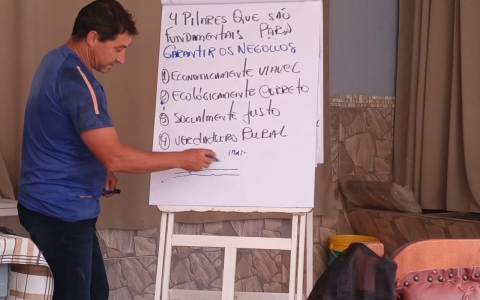 4 PILARES QUE SÃO
FUNDAMENTAIS PARA
GARANTIR OS NEGÓCIOS
① ECONOMICAMENTE VIAVEL
② ECOLÓGICAMENTE CORRETO
③ SOCIALMENTE JUSTO
④ VERDADEIRO RURAL